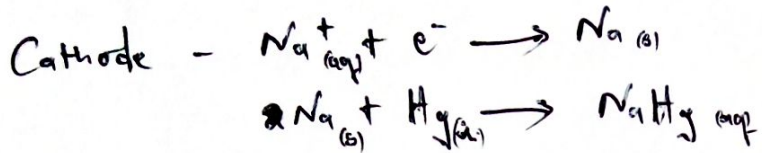 Cathode - Na⁺(aq) + e⁻ ⟶ Na (s)
Na(s) + Hg(l) ⟶ NaHg aq